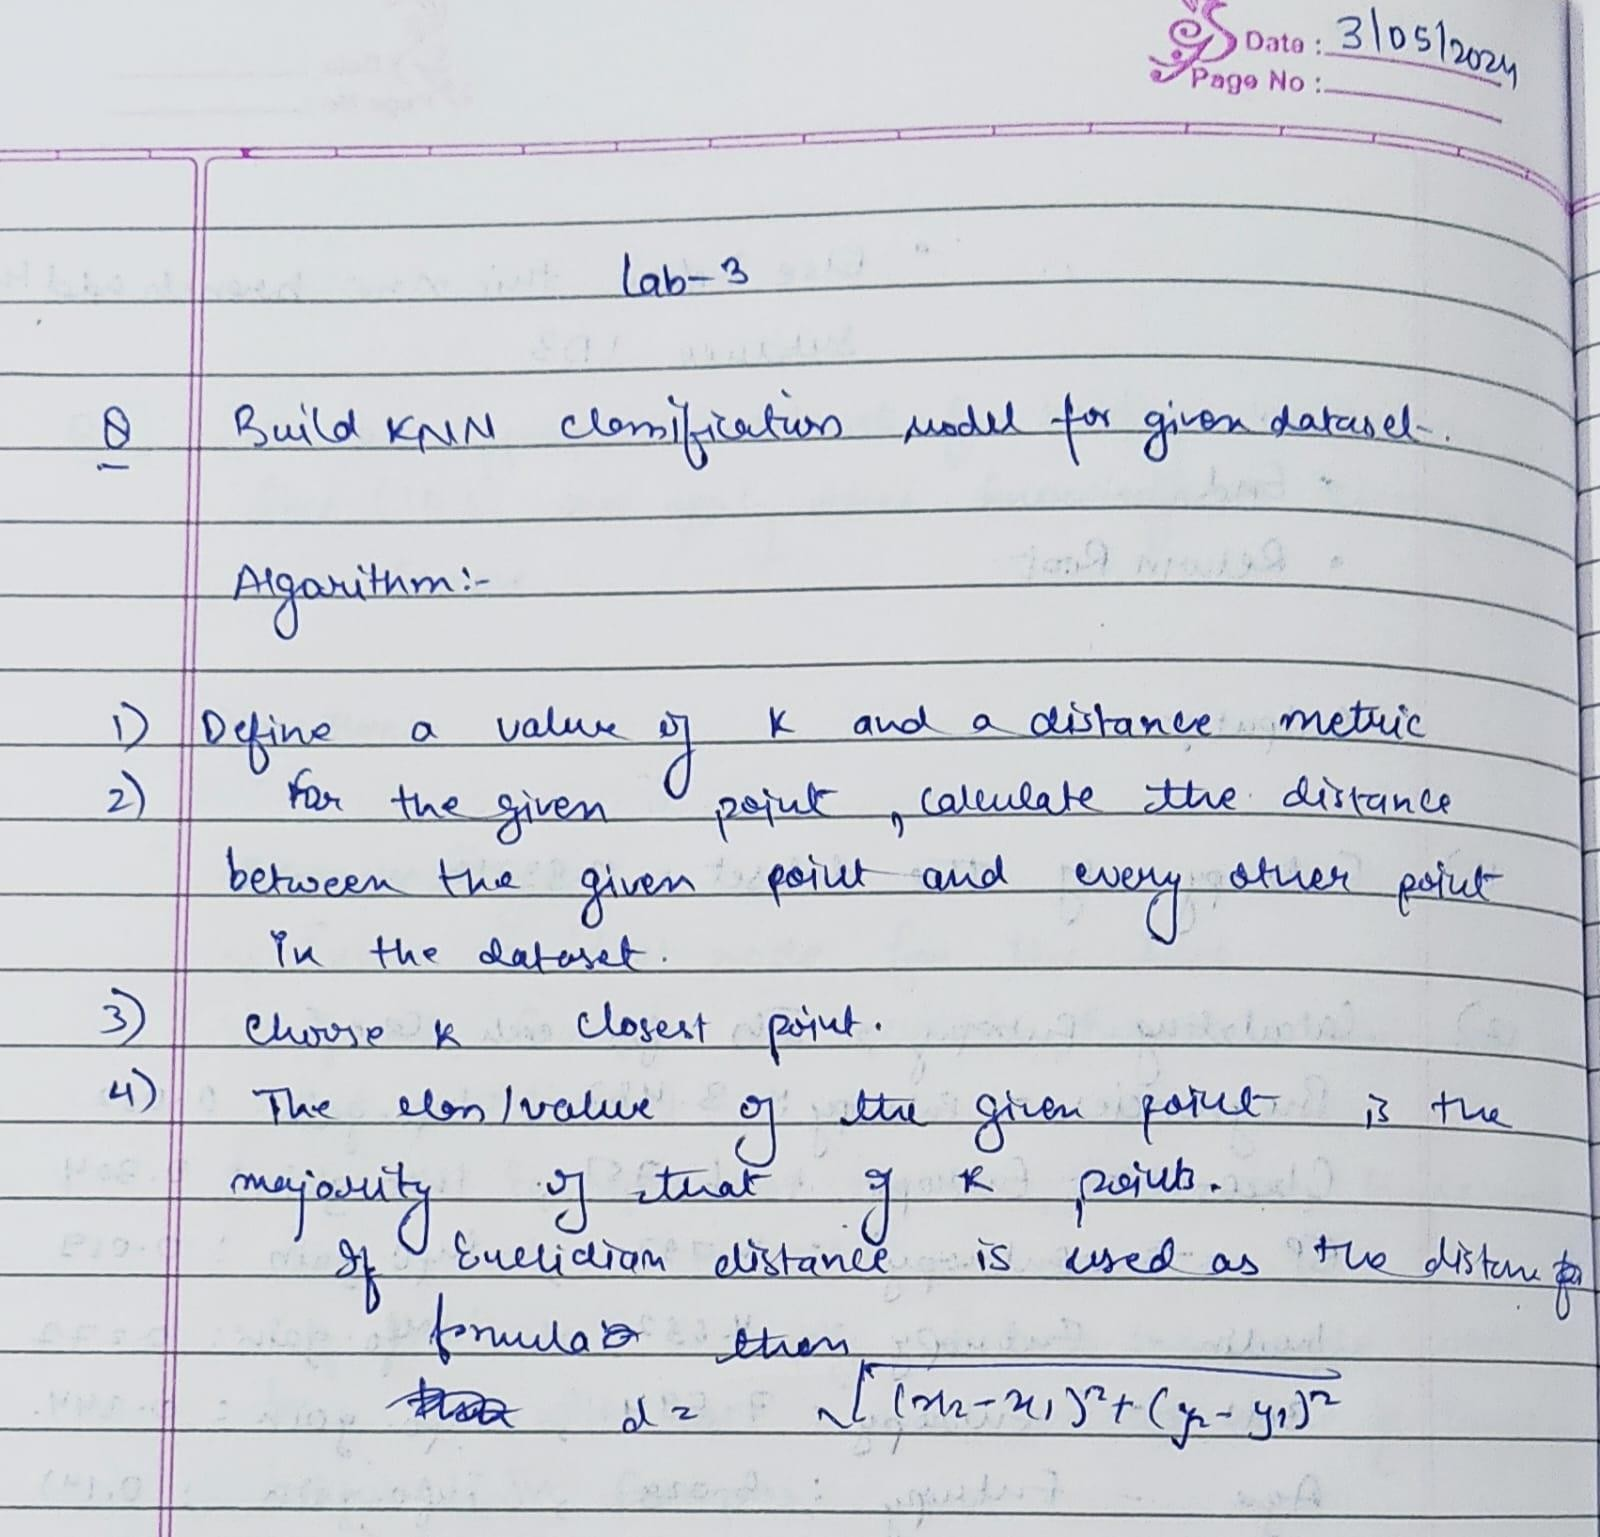 Date : 3/05/2024
Page No :
Lab-3
Q Build KNN classification model for given dataset.
Algorithm:-
1) Define a value of k and a distance metric
2) For the given point, calculate the distance
between the given point and every other point
in the dataset.
3) Choose k closest point.
4) The class/value of the given point is the
majority of that of k points.
If Euclidian distance is used as the distance
formula then
d = √(x₂-x₁)²+(y₂-y₁)²